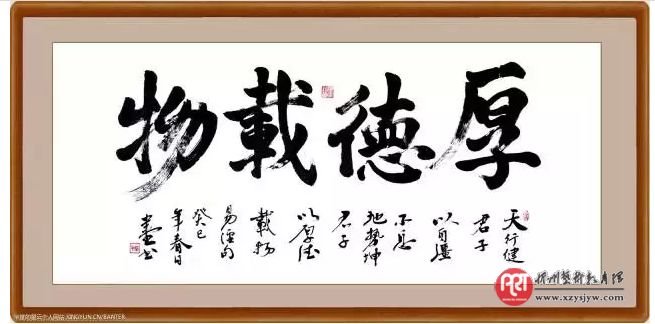 厚德載物
天行健
君子
以自彊
不息
地勢坤
君子
以厚德
載物
易經句
癸巳
年春日
www.xzysjyw.com
XINGYUN.CN/BANTER